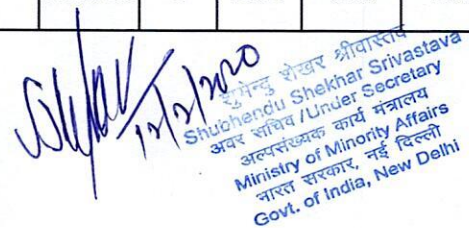 12/2/2020
शुभेन्दु शेखर श्रीवास्तव
Shubhendu Shekhar Srivastava
अवर सचिव /Under Secretary
अल्पसंख्यक कार्य मंत्रालय
Ministry of Minority Affairs
भारत सरकार, नई दिल्ली
Govt. of India, New Delhi